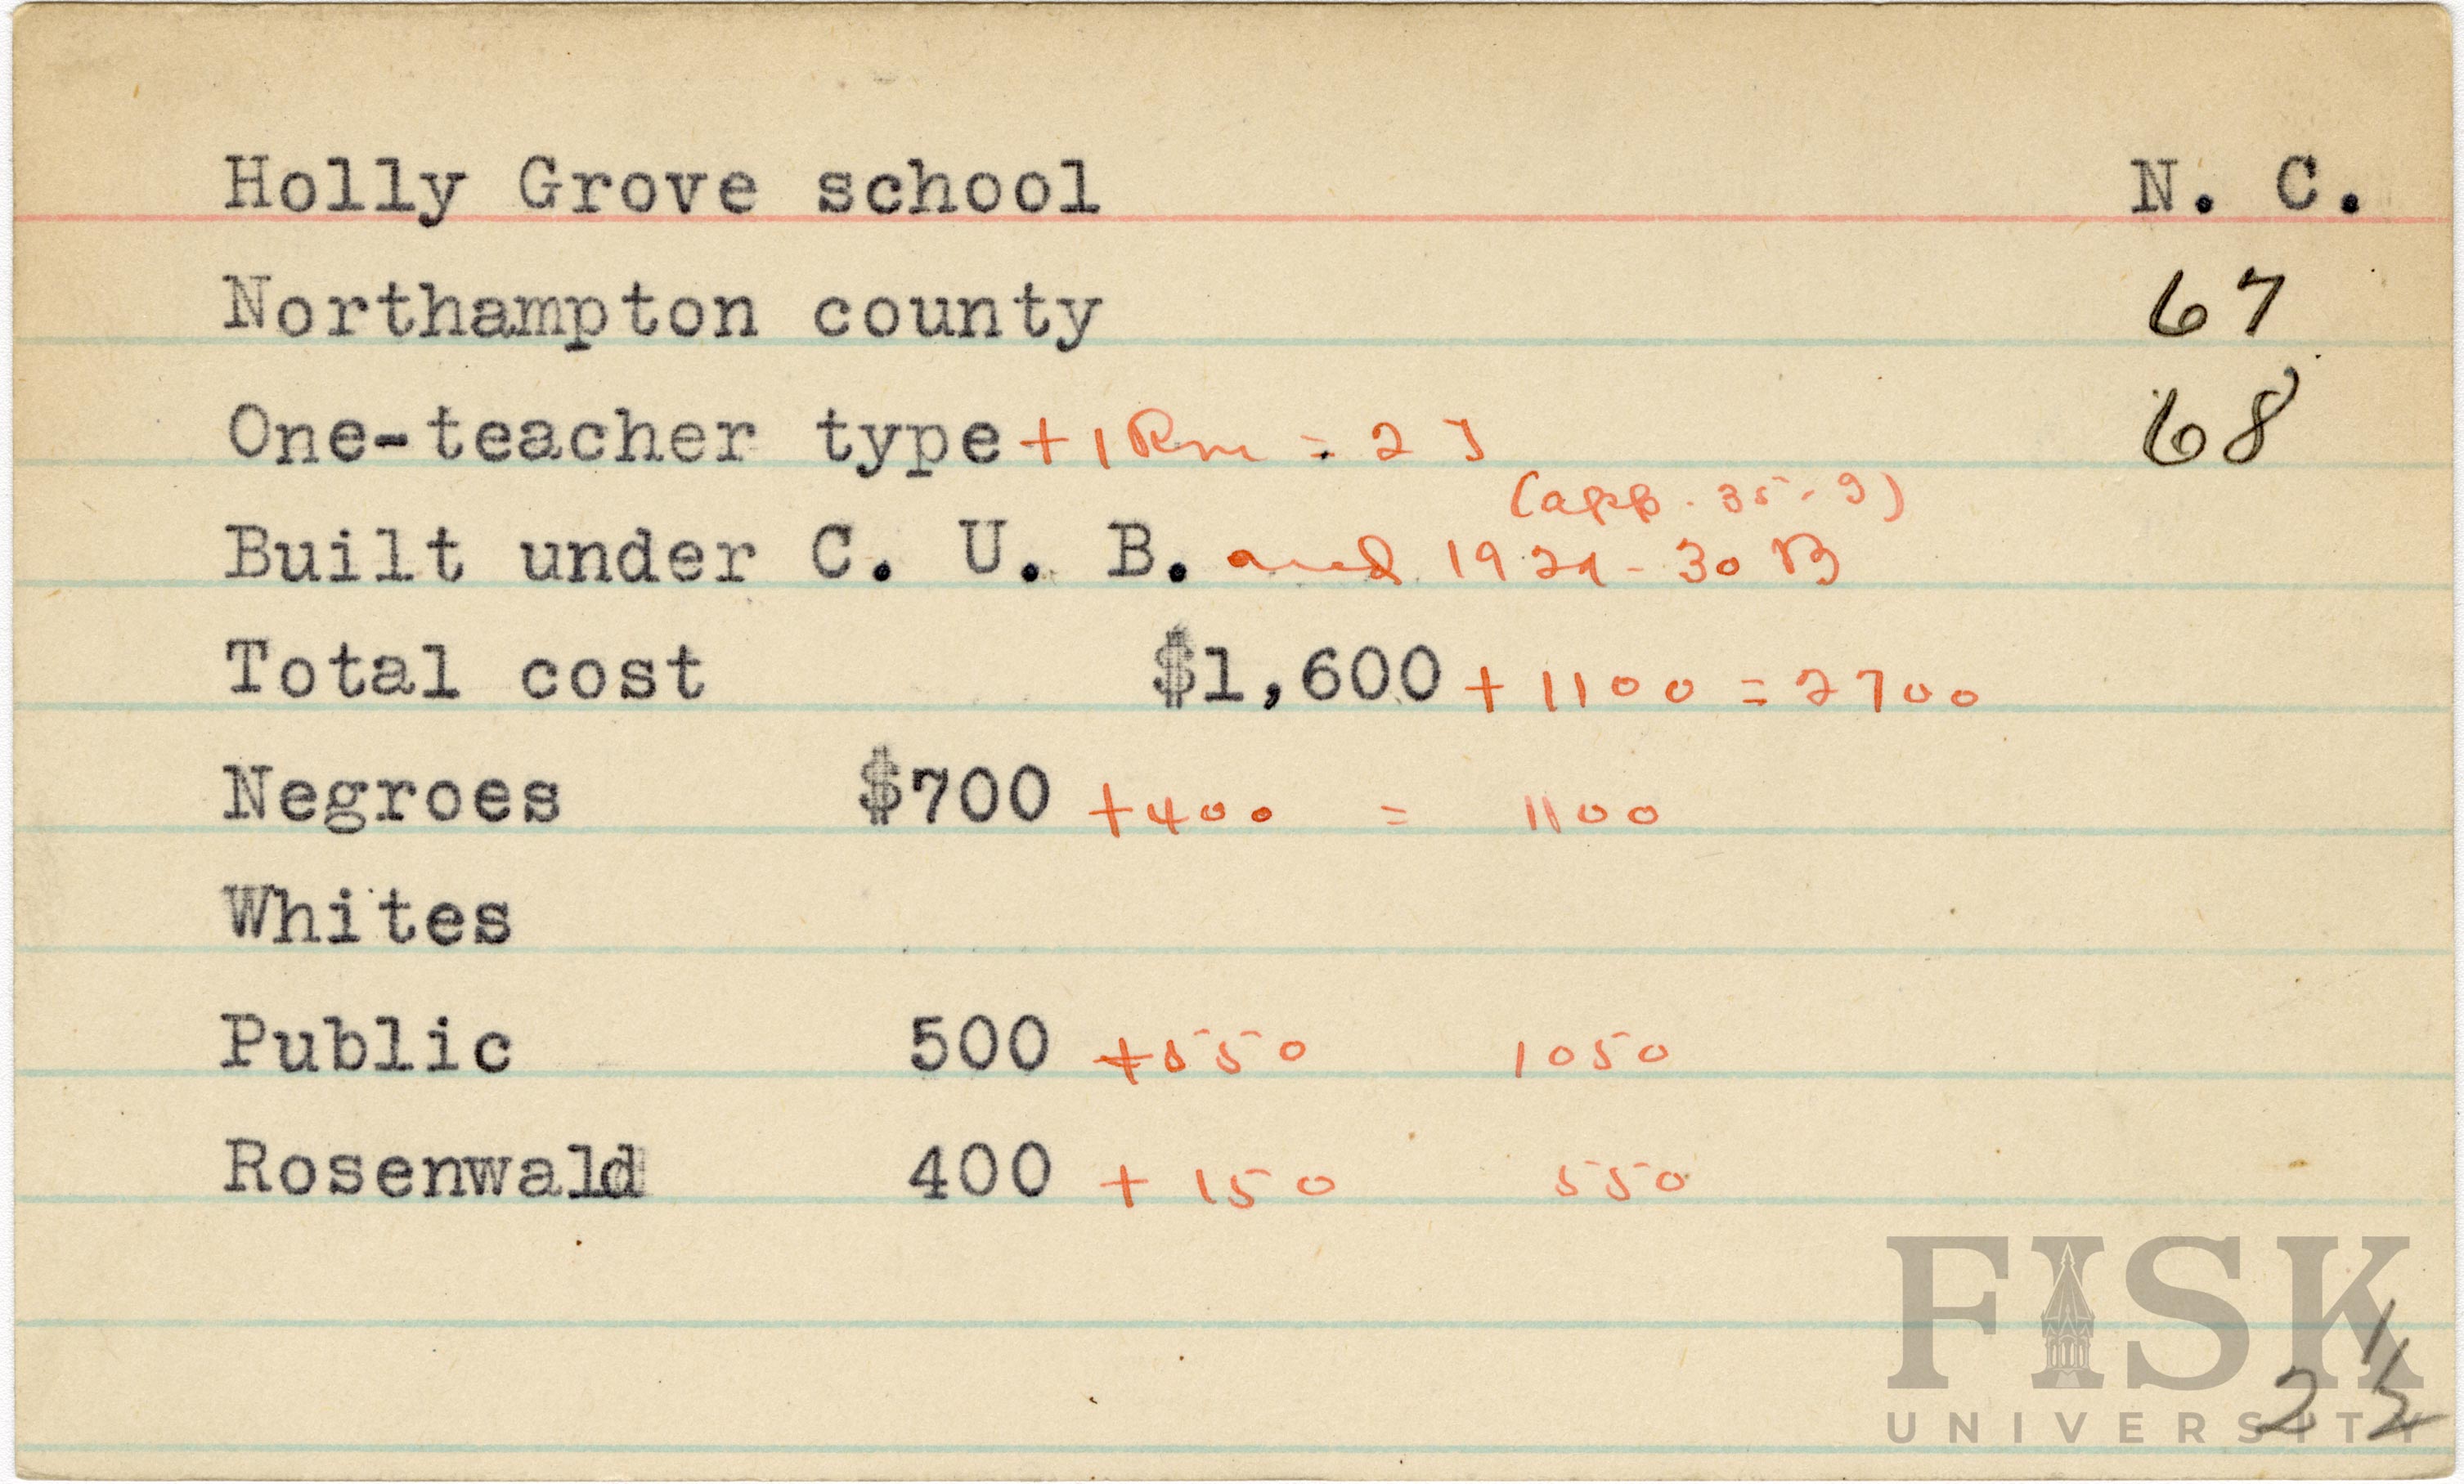 Holly Grove school N. C.
Northampton county 67
One-teacher type + 1 Rm = 2 J 68
(app. 35-9)
Built under C. U. B. and 1929-30 B
Total cost $1,600 + 1100 = 2700
Negroes $700 + 400 = 1100
Whites
Public 500 + 550 1050
Rosenwald 400 + 150 550
FISK
UNIVERSITY
2 1/2